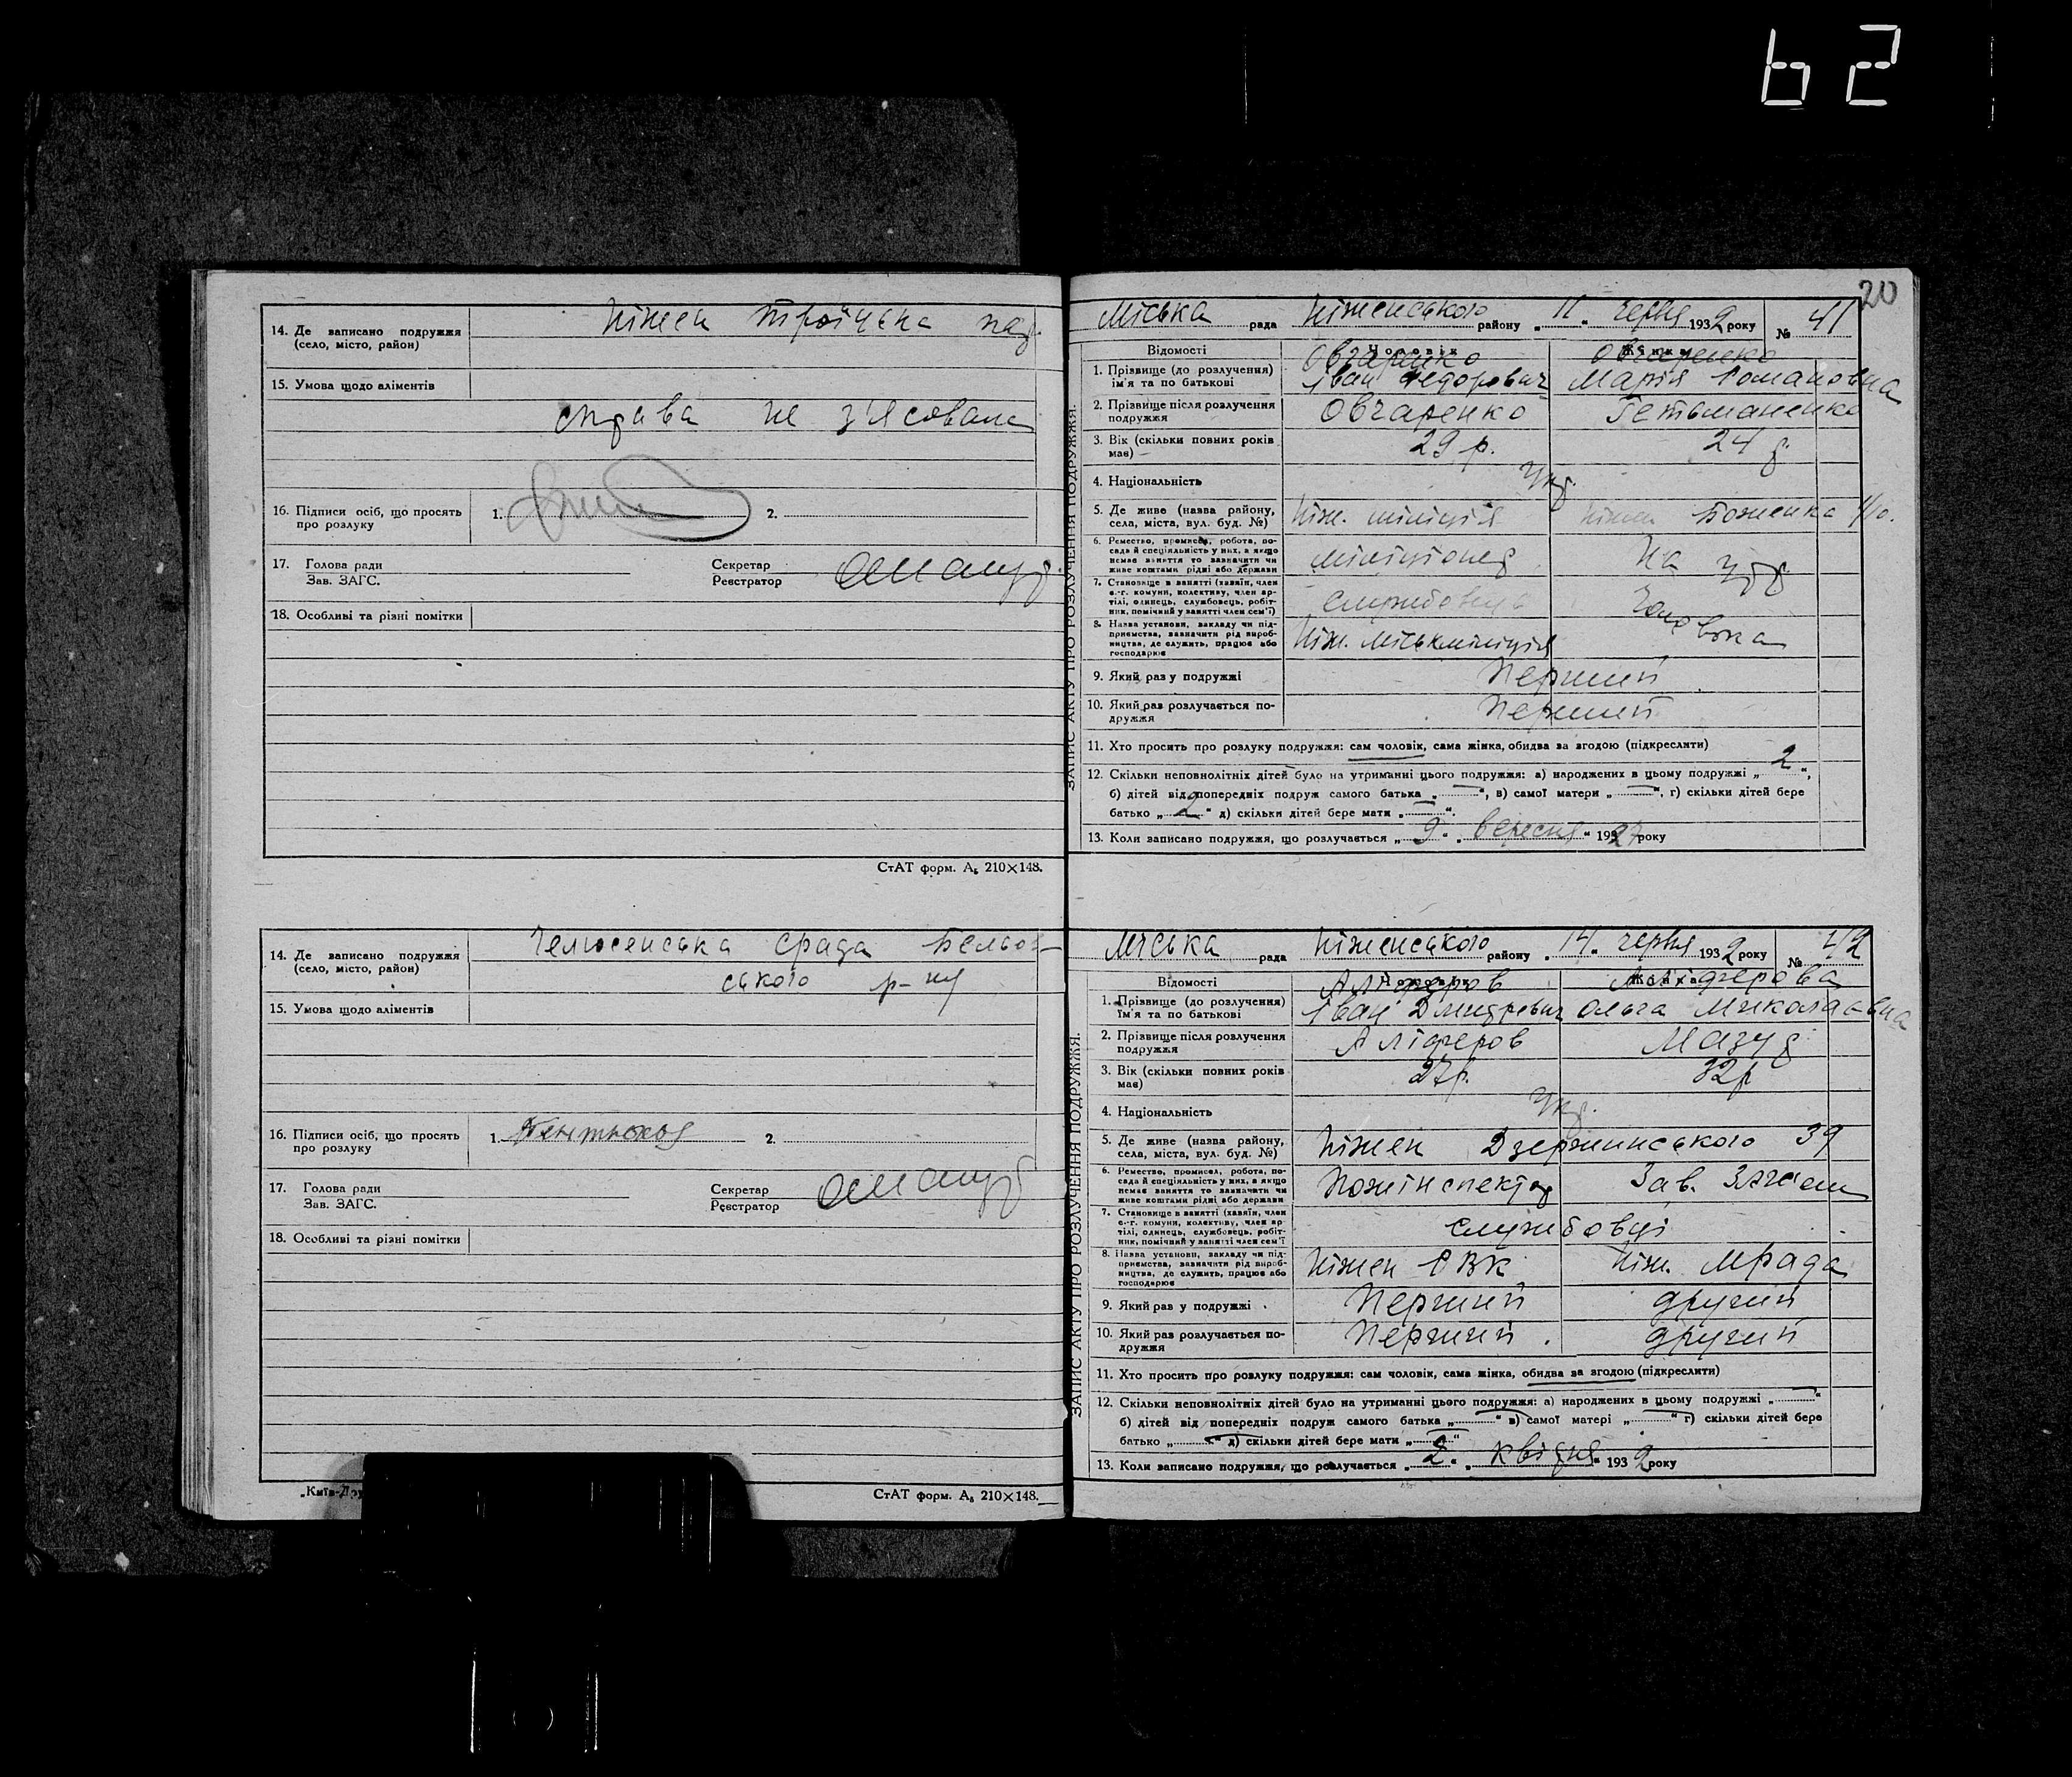 62
14. Де записано подружжя (село, місто, район) Ніжен Троїцька пар.
15. Умова щодо аліментів
справа не з'ясована
16. Підписи осіб, що просять про розлуку 1. 2.
17. Голова ради Зав. ЗАГС. Секретар Реєстратор
18. Особливі та різні помітки
СтАТ форм. А₅ 210×148.
14. Де записано подружжя (село, місто, район) срада
ського р-ну
15. Умова щодо аліментів
16. Підписи осіб, що просять про розлуку 1. 2.
17. Голова ради Зав. ЗАГС. Секретар Реєстратор
18. Особливі та різні помітки
„Київ-Дру
СтАТ форм. А₅ 210×148.
20
ЗАПИС АКТУ ПРО РОЗЛУЧЕННЯ ПОДРУЖЖЯ.
Міська рада Ніженського району „11" червня 1932 року № 41
Відомості Чоловік Жінка
Овчаренко Овчаренко
1. Прізвище (до розлучення) ім'я та по батькові Іван Федорович Марія Романовна
2. Прізвище після розлучення подружжя Овчаренко Гетьманенко
3. Вік (скільки повних років має) 29 р. 24 р.
4. Національність Укр.
5. Де живе (назва району, села, міста, вул. буд. №) Ніж. міліція Ніжен Боженка
6. Ремество, промисел, робота, посада й спеціяльність у них, а якщо немає заняття то зазначити чи живе коштами рідні або держави міліціонер На утр
7. Становище в занятті (хазяїн, член с.-г. комуни, колективу, член артілі, одинець, службовець, робітник, помічний у занятті член сем'ї) службовець чоловіка
8. Назва установи, закладу чи підприємства, зазначити рід виробництва, де служить, працює або господарює Ніж. міськміліція
9. Який раз у подружжі Перший
10. Який раз розлучається подружжя Перший
11. Хто просить про розлуку подружжя: сам чоловік, сама жінка, обидва за згодою (підкреслити)
12. Скільки неповнолітніх дітей було на утриманні цього подружжя: а) народжених в цьому подружжі „2",
б) дітей від попередніх подруж самого батька „—", в) самої матери „—", г) скільки дітей бере
батько „2" д) скільки дітей бере мати „—".
13. Коли записано подружжя, що розлучається „9" „вересня" 1927 року
ЗАПИС АКТУ ПРО РОЗЛУЧЕННЯ ПОДРУЖЖЯ.
Міська рада Ніженського району „14" червня 1932 року № 42
Відомості Чоловік Жінка
Аліферов Аліферова
1. Прізвище (до розлучення) ім'я та по батькові Іван Дмитрович Ольга Миколаевна
2. Прізвище після розлучення подружжя Аліферов Мазур
3. Вік (скільки повних років має) 27 р. 32 р
4. Національність Укр.
5. Де живе (назва району, села, міста, вул. буд. №) Ніжен Дзержинського 39
6. Ремество, промисел, робота, посада й спеціяльність у них, а якщо немає заняття то зазначити чи живе коштами рідні або держави Пожінспектор Зав. Загсом
7. Становище в занятті (хазяїн, член с.-г. комуни, колективу, член артілі, одинець, службовець, робітник, помічний у занятті член сем'ї службовці
8. Назва установи, закладу чи підприємства, зазначити рід виробництва, де служить, працює або господарює Ніжен РВК Ніж. Мрада
9. Який раз у подружжі Перший другий
10. Який раз розлучається подружжя Перший другий
11. Хто просить про розлуку подружжя: сам чоловік, сама жінка, обидва за згодою (підкреслити)
12. Скільки неповнолітніх дітей було на утриманні цього подружжя: а) народжених в цьому подружжі „—"
б) дітей від попередніх подруж самого батька „—" в) самої матері „—" г) скільки дітей бере
батько „—" д) скільки дітей бере мати „—"
13. Коли записано подружжя, що розлучається „2" „квітня" 1932 року